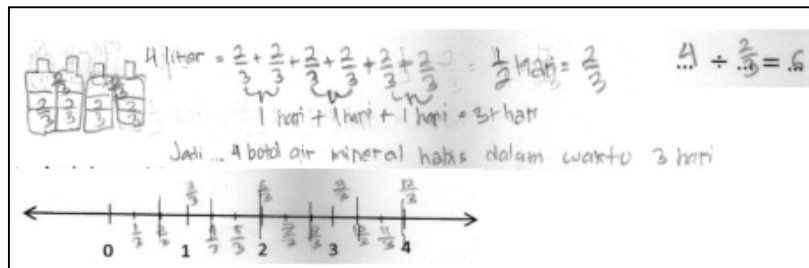 4 liter = 2/3 + 2/3 + 2/3 + 2/3 + 2/3 + 2/3 = 1/2 hari = 2/3
4 ÷ 2/3 = 6
2/3 2/3 2/3 2/3
1 hari + 1 hari + 1 hari = 3 hari
Jadi ... 4 botol air mineral habis dalam waktu 3 hari
3/3 6/3 9/3 12/3
0 1/3 2/3 1 4/3 5/3 2 7/3 8/3 3 11/3 4